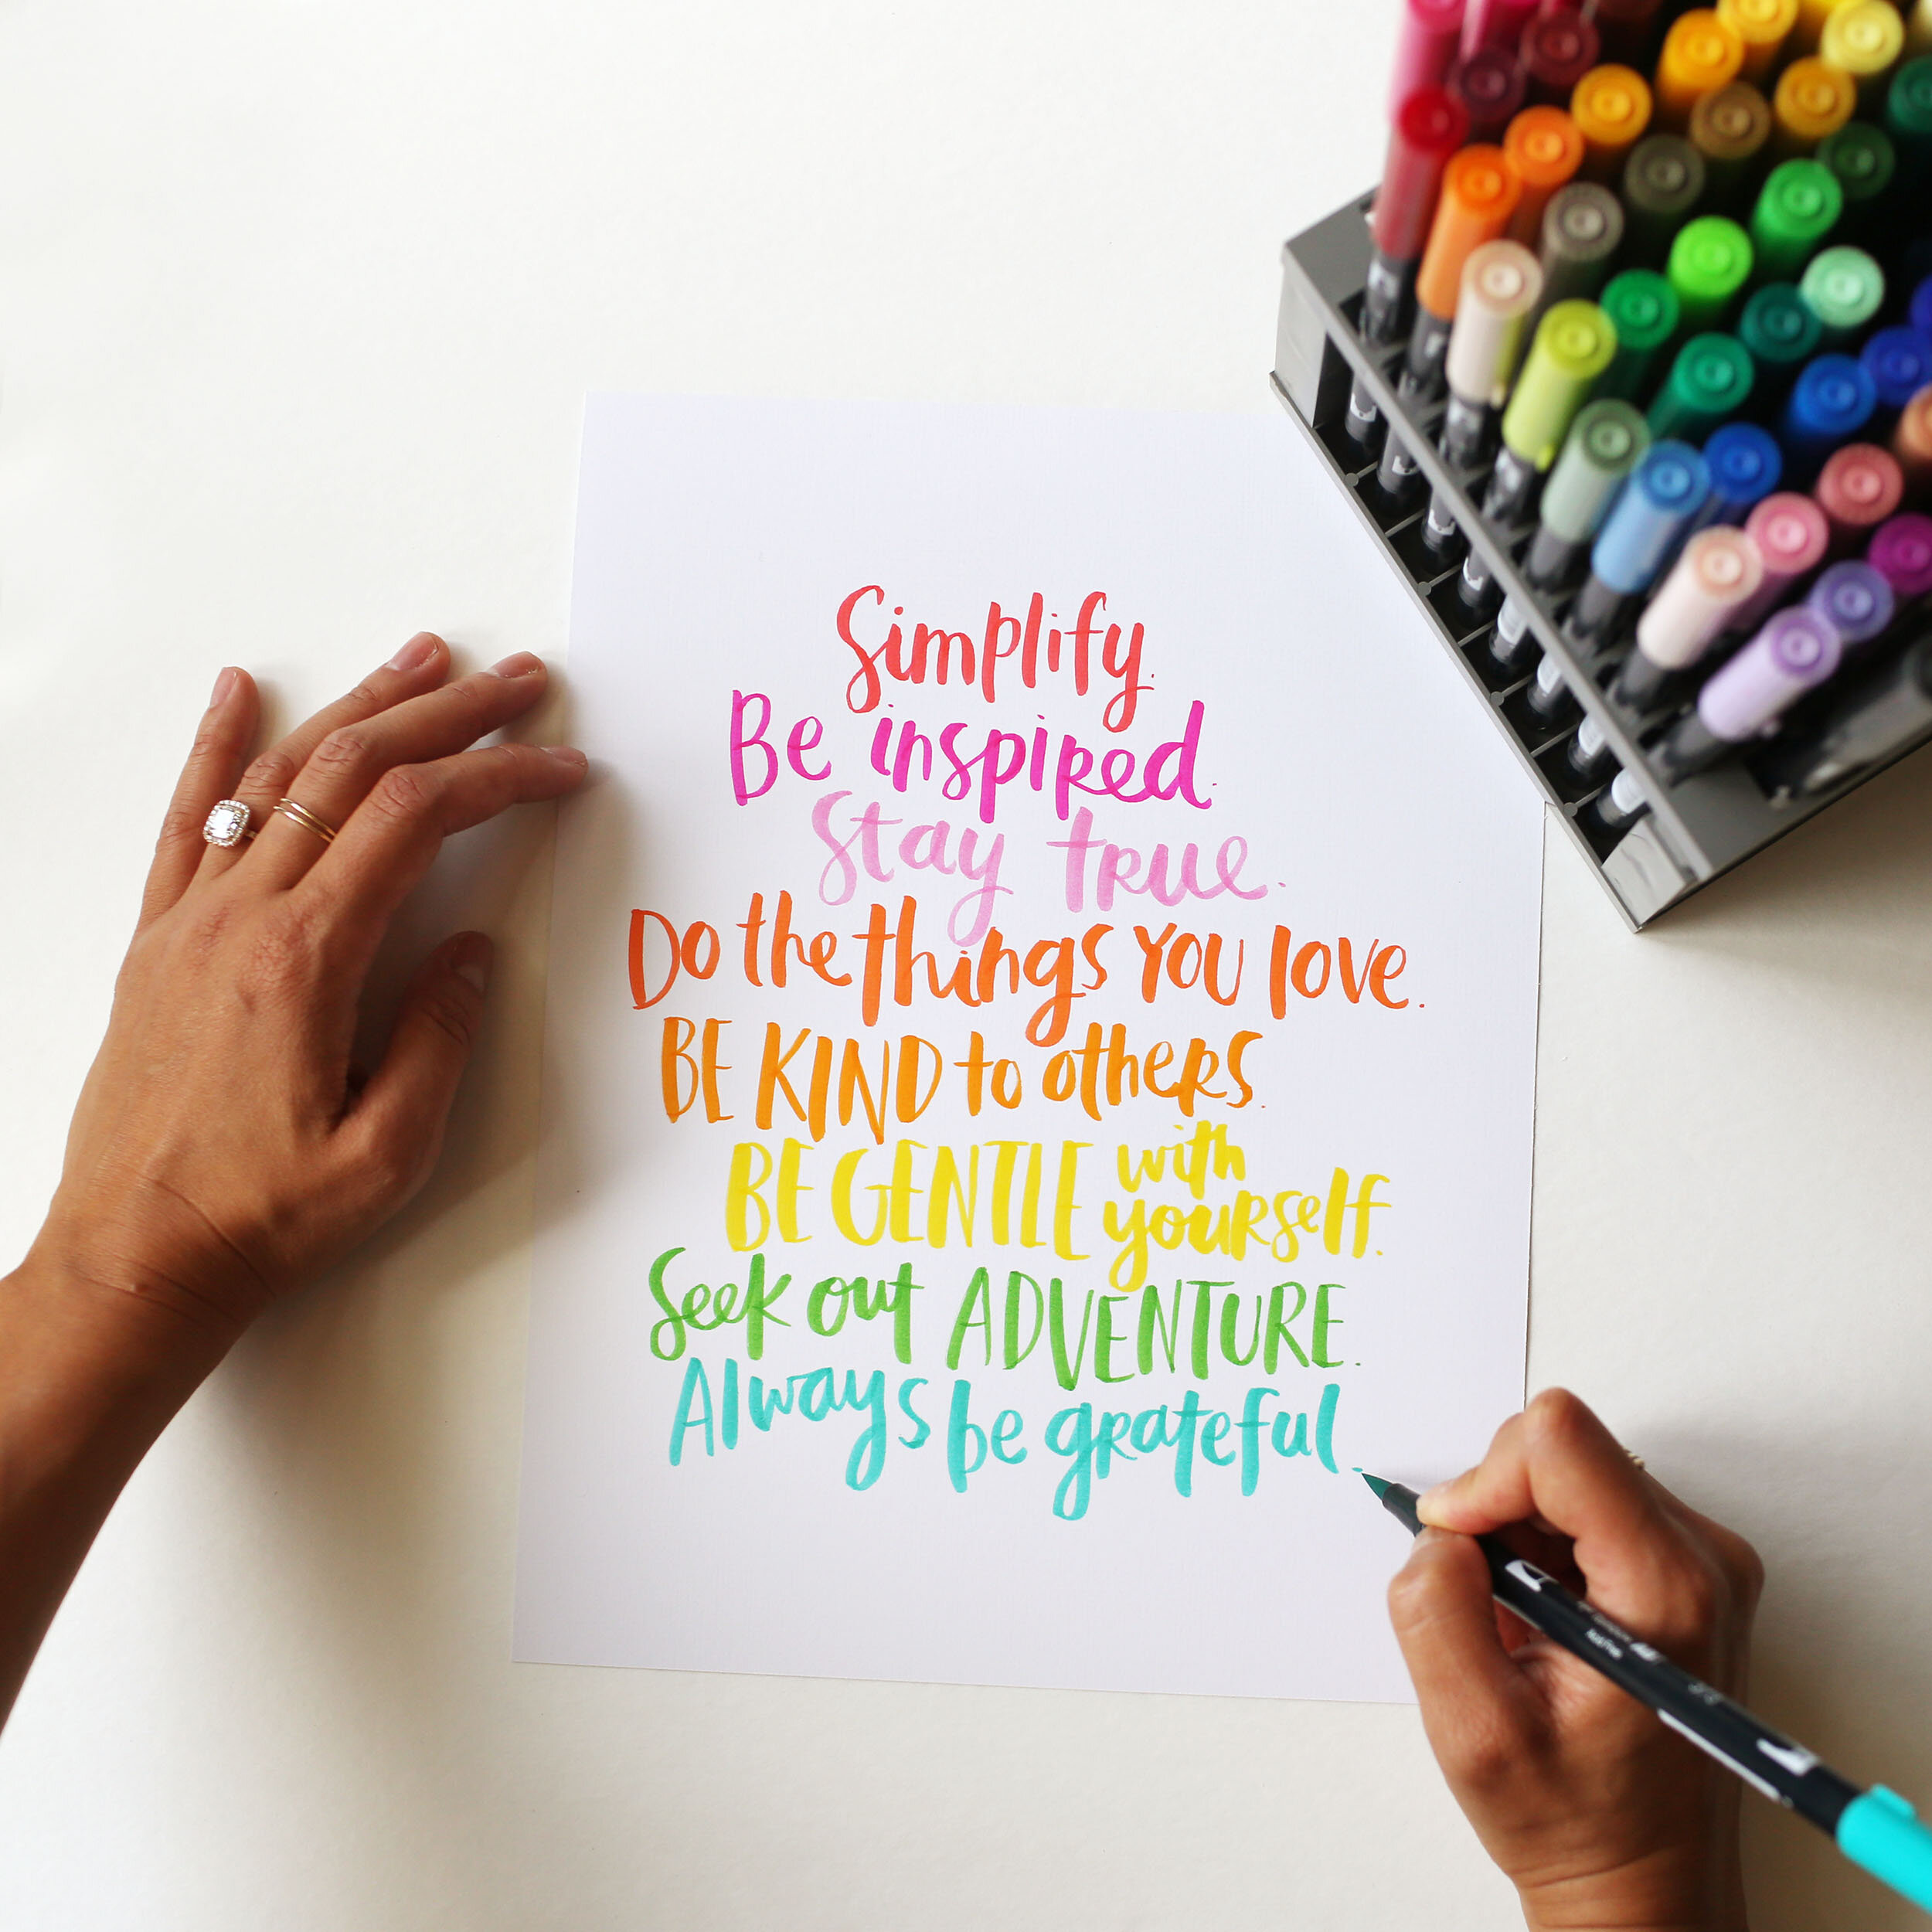 Simplify.
Be inspired.
Stay true.
Do the things you love.
BE KIND to others.
BE GENTLE with yourself.
Seek out ADVENTURE.
Always be grateful.